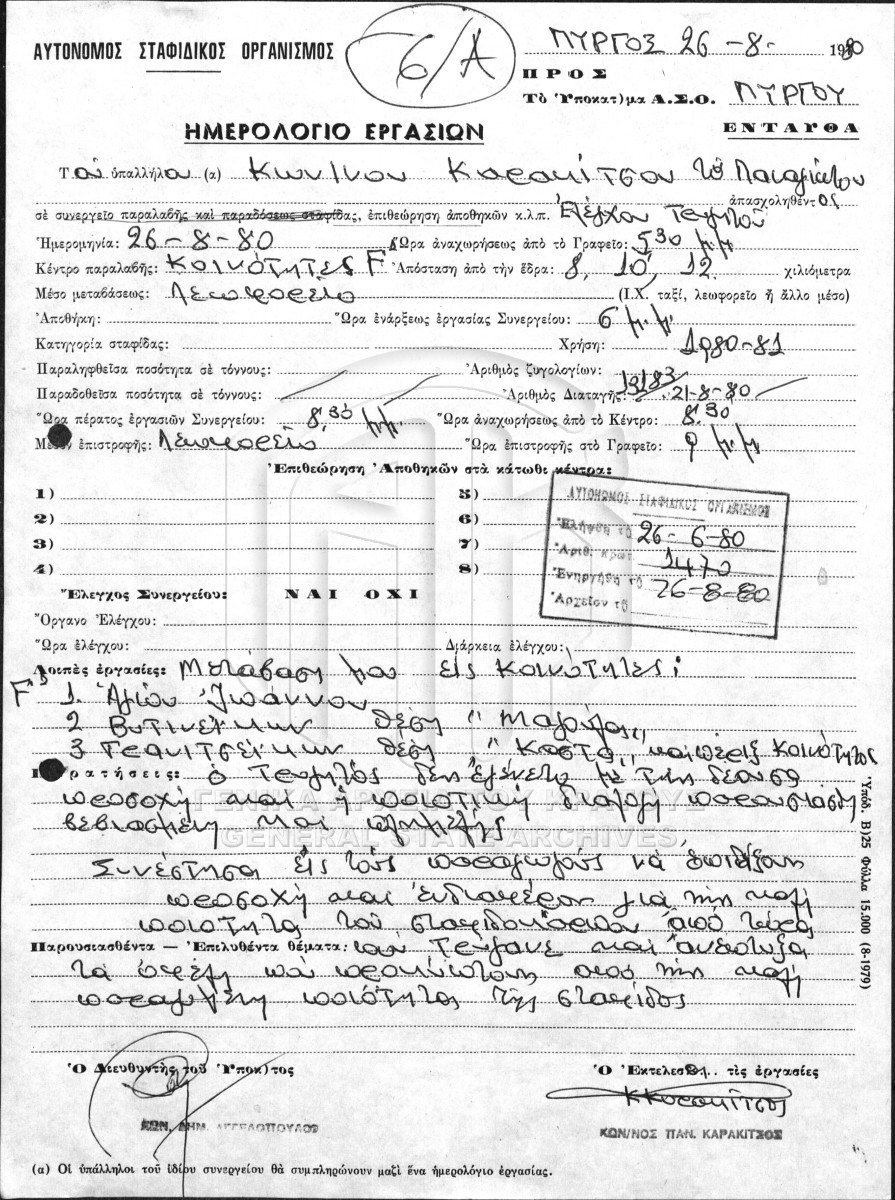 ΑΥΤΟΝΟΜΟΣ ΣΤΑΦΙΔΙΚΟΣ ΟΡΓΑΝΙΣΜΟΣ
6/Α
ΠΥΡΓΟΣ 26-8- 1980
ΠΡΟΣ
Τὸ Ὑποκατ)μα Α.Σ.Ο. ΠΥΡΓΟΥ
ΕΝΤΑΥΘΑ
ΗΜΕΡΟΛΟΓΙΟ ΕΡΓΑΣΙΩΝ
Τοῦ ὑπαλλήλου (α) Κων/νου Καρακίτσου τοῦ Παναγιώτου
ἀπασχοληθέντος
σὲ συνεργεῖο παραλαβῆς καὶ παραδόσεως σταφίδας, ἐπιθεώρηση ἀποθηκῶν κ.λ.π. Ἐλέγχου Τρυγητοῦ
Ἡμερομηνία: 26-8-80 Ὥρα ἀναχωρήσεως ἀπὸ τὸ Γραφεῖο: 5³⁰ μ.μ.
Κέντρο παραλαβῆς: Κοινότητες F Ἀπόσταση ἀπὸ τὴν ἕδρα: 8, 10, 12 χιλιόμετρα
Μέσο μεταβάσεως: Λεωφορεῖο (Ι.Χ. ταξί, λεωφορεῖο ἤ ἄλλο μέσο)
Ἀποθήκη: Ὥρα ἐνάρξεως ἐργασίας Συνεργείου: 6 μ.μ.
Κατηγορία σταφίδας: Χρήση: 1980-81
Παραληφθεῖσα ποσότητα σὲ τόννους: Ἀριθμὸς ζυγολογίων:
Παραδοθεῖσα ποσότητα σὲ τόννους: Ἀριθμὸς Διαταγῆς: 13183/21-8-80
Ὥρα πέρατος ἐργασιῶν Συνεργείου: 8,30 μ.μ. Ὥρα ἀναχωρήσεως ἀπὸ τὸ Κέντρο: 8,30
Μέσον ἐπιστροφῆς: Λεωφορεῖο Ὥρα ἐπιστροφῆς στὸ Γραφεῖο: 9 μ.μ.
Ἐπιθεώρηση Ἀποθηκῶν στὰ κάτωθι κέντρα:
1) 5)
2) 6)
3) 7)
4) 8)
ΑΥΤΟΝΟΜΟΣ ΣΤΑΦΙΔΙΚΟΣ ΟΡΓΑΝΙΣΜΟΣ
Ἐλήφθη τῇ 26-6-80
Ἀριθ. πρωτ. 1470
Ἐνηργήθη τῇ 26-8-80
Ἀρχεῖον τῇ
Ἔλεγχος Συνεργείου: ΝΑΙ ΟΧΙ
Ὄργανο Ἐλέγχου:
Ὥρα ἐλέγχου: Διάρκεια ἐλέγχου:
Λοιπὲς ἐργασίες: Μετάβαση μου εἰς Κοινότητες:
F 1. Ἁγίου Ἰωάννου
2 Βυτινεΐκων θέση "Μαγούλα"
3 Γρανιτσεΐκων θέση "Κώστα" καὶ πέριξ Κοινότητος
Παρατήσεις: ὁ Τρυγητὸς δὲν ἐγένετο μὲ τὴν δέουσα
προσοχὴ καὶ ἡ ποιοτικὴ διαλογὴ παρουσιάσθη
βεβιασμένη καὶ πλημελής
Συνέστησα εἰς τοὺς παραγωγοὺς νὰ ἐπιδείξουν
προσοχὴ καὶ ἐνδιαφέρον γιὰ τὴν καλὴ
ποιότητα τοῦ σταφιδοκάρπου ἀπὸ τώρα
Παρουσιασθέντα — Ἐπιλυθέντα θέματα: ποὺ τρυγᾶνε καὶ ἀνέπτυξα
τὰ ὀφέλη ποὺ προκύπτουν ἀπὸ τὴν καλὴ
παραγωμένη ποιότητα τῆς σταφίδος
ΓΕΝΙΚΑ ΑΡΧΕΙΑ ΤΟΥ ΚΡΑΤΟΥΣ
GENERAL STATE ARCHIVES
Ὑποδ. Β)25 Φύλλα 15.000 (8-1979)
Ὁ Διευθυντὴς τοῦ Ὑποκ)τος Ὁ Ἐκτελεσας τὶς ἐργασίες
Κ Καρακίτσος
ΚΩΝ. ΔΗΜ. ΑΓΓΕΛΟΠΟΥΛΟΣ ΚΩΝ/ΝΟΣ ΠΑΝ. ΚΑΡΑΚΙΤΣΟΣ
(α) Οἱ ὑπάλληλοι τοῦ ἰδίου συνεργείου θὰ συμπληρώνουν μαζὶ ἕνα ἡμερολόγιο ἐργασίας.